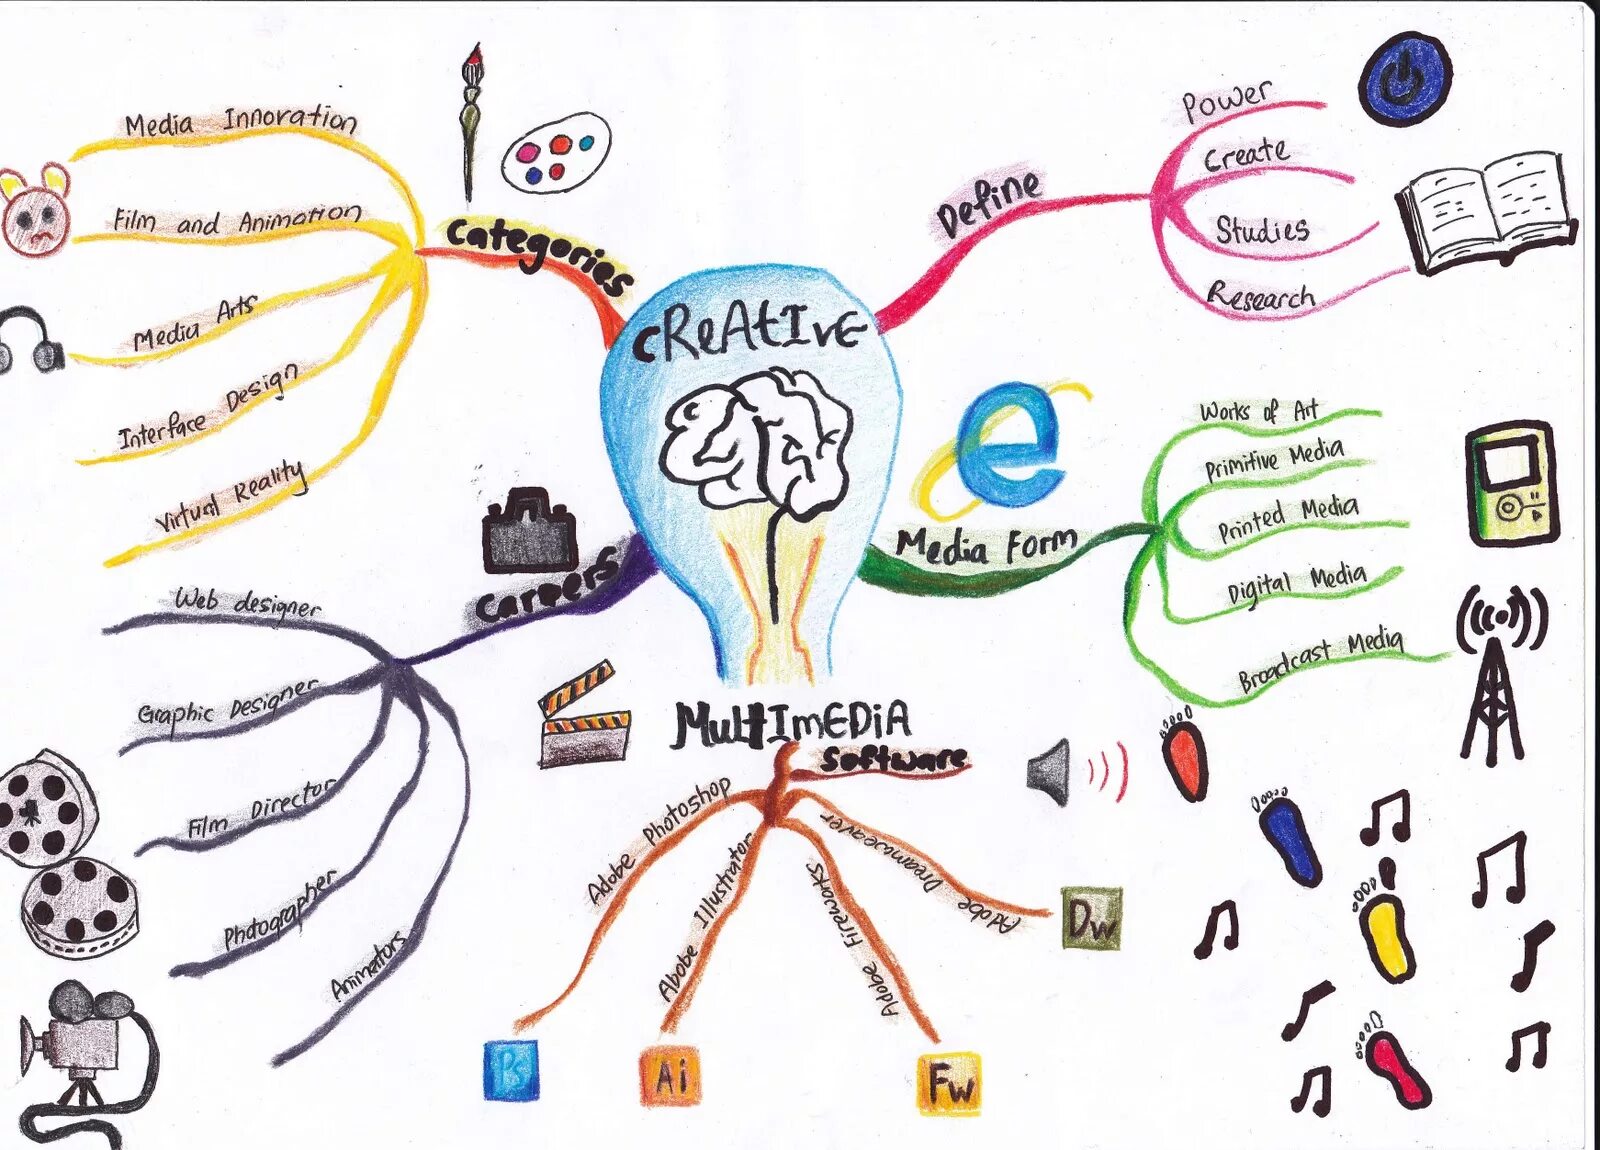 CREATIVE
MULTIMEDIA
Categories
Media Innoration
Film and Animation
Media Arts
Interface Design
Virtual Reality
Define
Power
Create
Studies
Research
Media Form
Works of Art
Primitive Media
Printed Media
Digital Media
Broadcast Media
Careers
Web designer
Graphic Designer
Film Director
Photographer
Animators
Software
Adobe Photoshop
Abobe Illustrator
Adobe Fireworks
Adobe Dreamweaver
Ps
Ai
Fw
Dw
e